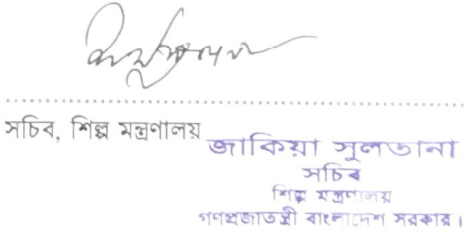 সচিব, শিল্প মন্ত্রণালয়
জাকিয়া সুলতানা
সচিব
শিল্প মন্ত্রণালয়
গণপ্রজাতন্ত্রী বাংলাদেশ সরকার।